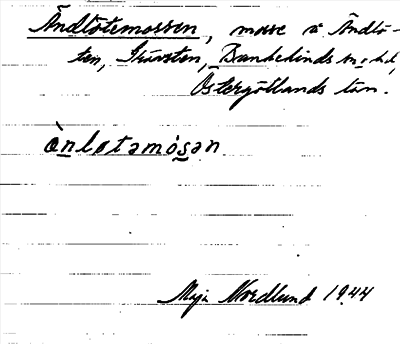 Ändlötemossen, mosse å Ändlö-
ten, Grävsten, Bankekinds sn o hd,
Östergötlands län.
ὰnlɵtəmósən
Maja Nordlund 1944